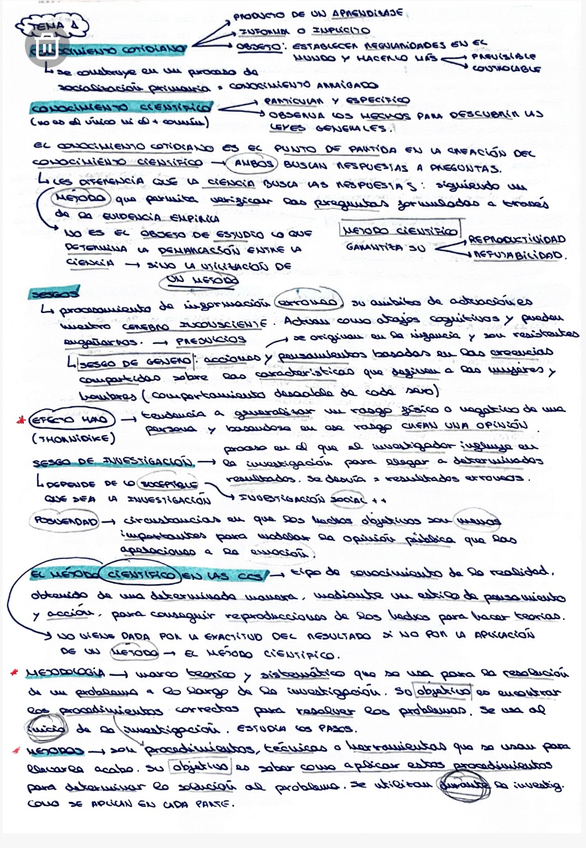 TEMA 1
→ PRODUCTO DE UN APRENDIZAJE
→ INFORMAL O IMPLÍCITO
CONOCIMIENTO COTIDIANO → OBJETO: ESTABLECER REGULARIDADES EN EL
MUNDO Y HACERLO MÁS → PREVISIBLE
→ CONTROLABLE
↳ se construye en un proceso de
socialización primaria = CONOCIMIENTO ARRAIGADO
CONOCIMIENTO CIENTÍFICO → PARTICULAR Y ESPECÍFICO
(no es el único ni el + común) → OBSERVA LOS HECHOS PARA DESCUBRIR LAS
LEYES GENERALES.
EL CONOCIMIENTO COTIDIANO ES EL PUNTO DE PARTIDA EN LA CREACIÓN DEL
CONOCIMIENTO CIENTÍFICO → AMBOS BUSCAN RESPUESTAS A PREGUNTAS.
↳ LES DIFERENCIA QUE LA CIENCIA BUSCA LAS RESPUESTAS: siguiendo un
MÉTODO que permita verificar las preguntas formuladas a través
de la EVIDENCIA EMPÍRICA
↳ NO ES EL OBJETO DE ESTUDIO LO QUE
DETERMINA LA DEMARCACIÓN ENTRE LA
CIENCIA → SINO LA UTILIZACIÓN DE
UN MÉTODO
MÉTODO CIENTÍFICO
GARANTIZA SU → REPRODUCTIVIDAD
→ REFUTABILIDAD.
SESGOS
↳ procesamiento de información erróneo, su ámbito de actuación es
nuestro CEREBRO INCONSCIENTE. Actúan como atajos cognitivos y pueden
engañarnos. → PREJUICIOS → se originan en la infancia y son resistentes
↳ SESGO DE GÉNERO: acciones y pensamientos basados en las creencias
compartidas sobre las características que definen a las mujeres y
hombres (comportamiento deseable de cada sexo)
* EFECTO HALO → tendencia a generalizar un rasgo físico o negativo de una
(THORNDIKE) persona y basandose en ese rasgo CREAN UNA OPINIÓN.
SESGO DE INVESTIGACIÓN → proceso en el que el investigador influye en
la investigación para llegar a determinados
resultados. Se desvía = resultados erróneos.
↳ DEPENDE DE LO SUCEPTIBLE
QUE SEA LA INVESTIGACIÓN → INVESTIGACIÓN SOCIAL ++
POSVERDAD → circunstancias en que los hechos objetivos son menos
importantes para modelar la opinión pública que las
apelaciones a la emoción.
EL MÉTODO CIENTÍFICO EN LAS CCS → tipo de conocimiento de la realidad.
obtenido de una determinada manera, mediante un estilo de pensamiento
y acción, para conseguir reproducciones de los hechos para hacer teorías.
→ NO VIENE DADA POR LA EXACTITUD DEL RESULTADO SI NO POR LA APLICACIÓN
DE UN MÉTODO → EL MÉTODO CIENTÍFICO.
* METODOLOGÍA → marco teórico y sistemático que se usa para la resolución
de un problema a lo largo de la investigación. Su objetivo es encontrar
los procedimientos correctos para resolver los problemas. Se usa al
inicio de la investigación. ESTUDIA LOS PASOS.
* MÉTODOS → son procedimientos, técnicas o herramientas que se usan para
llevarla acabo. Su objetivo es saber como aplicar estos procedimientos
para determinar la solución al problema. Se utilizan durante la investig.
COMO SE APLICAN EN CADA PARTE.